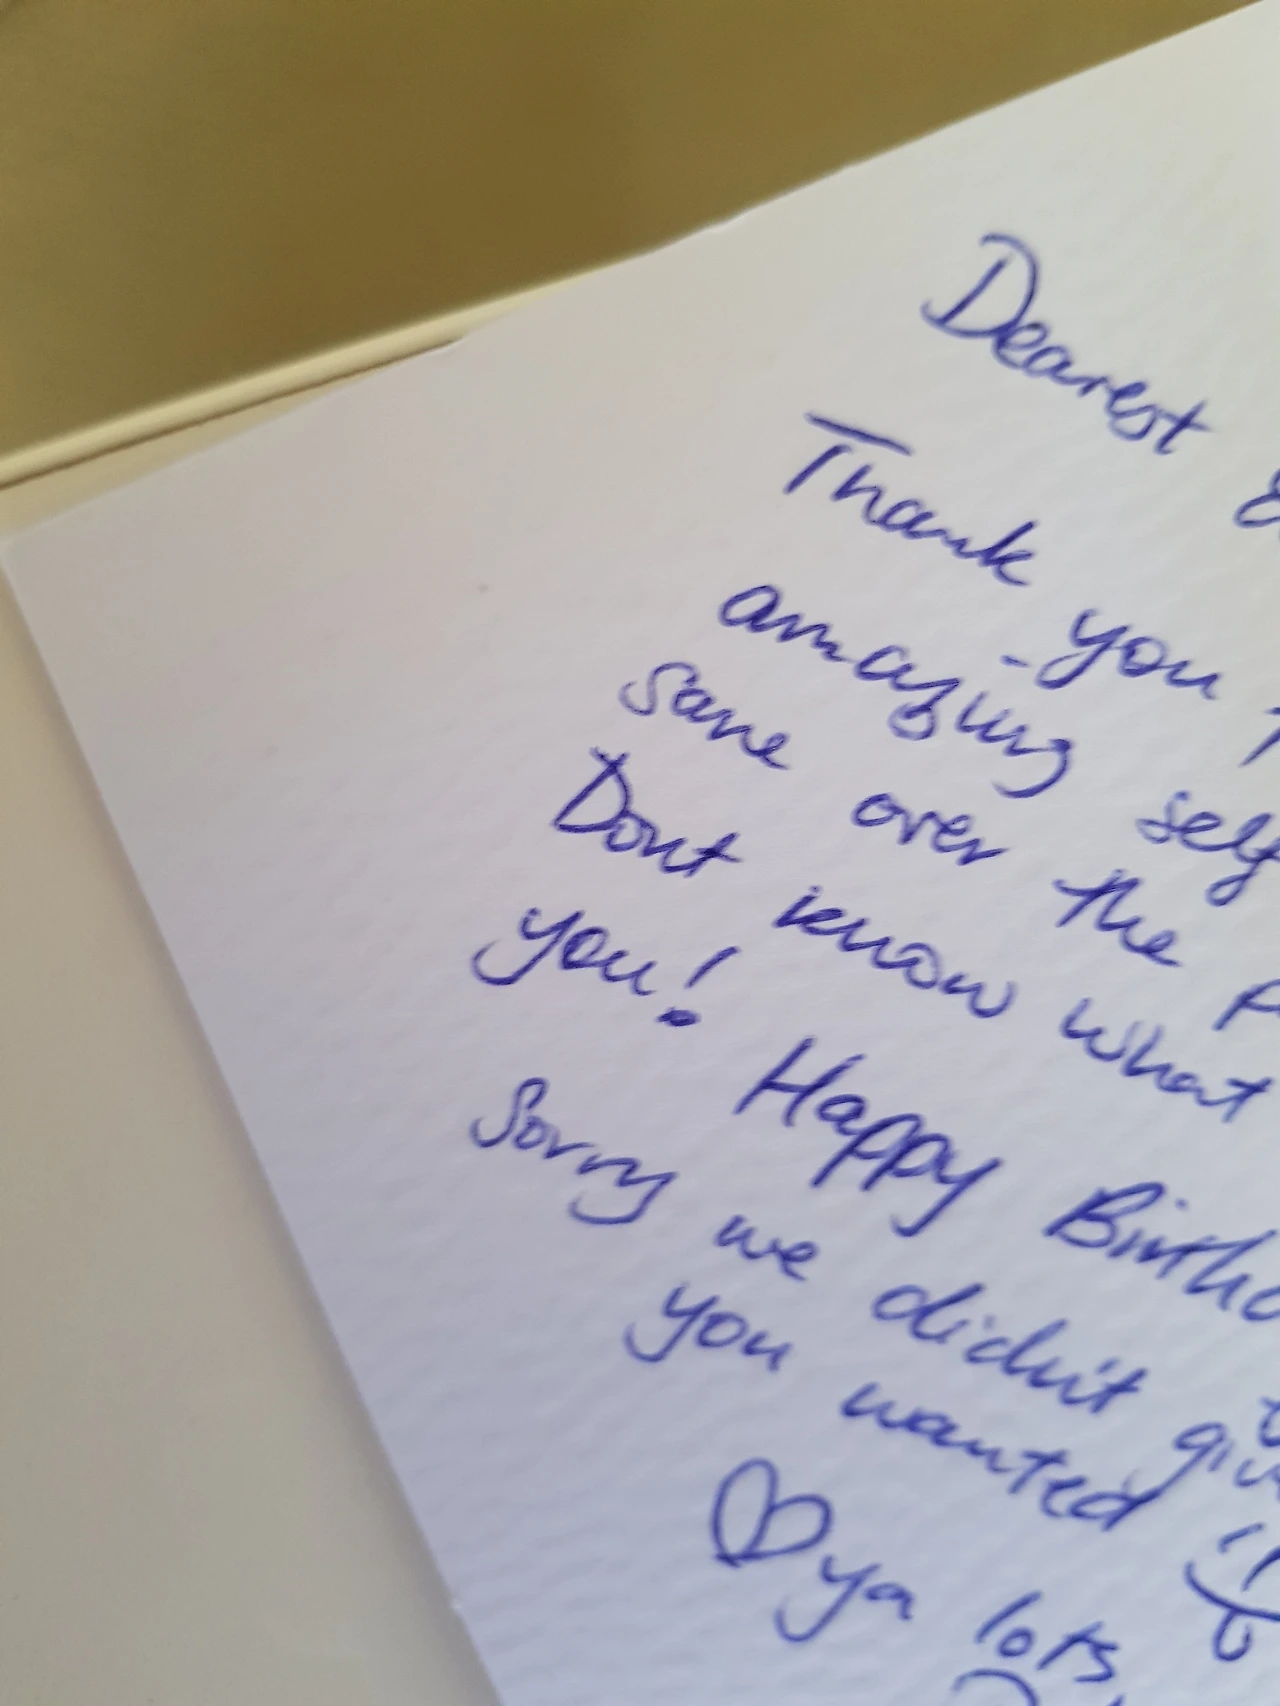 Dearest
Thank you
amazing self
sane over the
Dont know what
you!
Happy Birthd
Sorry we didn't giv
you wanted
ya lots